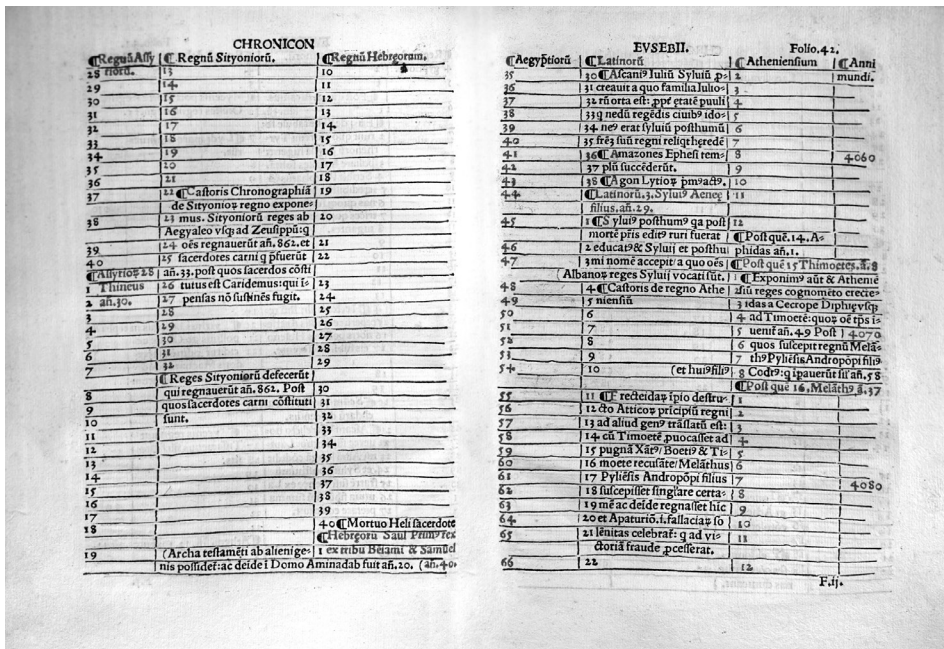 CHRONICON
¶Regnũ Assy | ¶ Regnũ Sityoniorũ. | ¶Regnũ Hebręorum.
28 riorũ. | 13 | 10
29 | 14 | 11
30 | 15 | 12
31 | 16 | 13
32 | 17 | 14
33 | 18 | 15
34 | 19 | 16
35 | 20 | 17
36 | 21 | 18
37 | 22 ¶Castoris Chronographiã | 19
de Sityonioꝝ regno expone⸗
38 | 23 mus. Sityoniorũ reges ab | 20
Aegyaleo vsq̃ ad Zeusippũ: q
39 | 24 oẽs regnauerũt añ. 862. et | 21
40 | 25 sacerdotes carni q p̃fuerũt | 22
¶Assyrioꝝ 28 | añ. 33. post quos sacerdos cõsti
1 Thineus | 26 tutus est Caridemus: qui i⸗ | 23
2 añ. 30. | 27 pensas nõ sustinẽs fugit. | 24
3 | 28 | 25
4 | 29 | 26
5 | 30 | 27
6 | 31 | 28
7 | 32 | 29
¶ Reges Sityoniorũ defecerũt
8 | qui regnauerũt añ. 862. Post | 30
9 | quos sacerdotes carni cõstituti | 31
10 | sunt. | 32
11 | 33
12 | 34
13 | 35
14 | 36
15 | 37
16 | 38
17 | 39
18 | 40 ¶Mortuo Heli sacerdote
¶Hebręorũ Saul Primꝰ rex
19 | (Archa testamẽti ab alieni ge⸗ | 1 ex tribu Bẽiami & Samuel
nis possidet: ac deide i Domo Aminadab fuit añ. 20. (añ. 40.
EVSEBII. Folio. 42.
¶Aegyp̃tiorũ | ¶Latinorũ | ¶Atheniensium | ¶Anni
35 | 30 ¶Ascaniꝰ Iuliũ Syluiũ ꝓ⸗ | 2 | mundi.
36 | 31 creauit a quo familia Iulio⸗ | 3
37 | 32 rũ orta est: ꝓpt̃ etatẽ puuli | 4
38 | 33 q nedũ regẽdis ciuibꝰ ido⸗ | 5
39 | 34 neꝰ erat syluiũ posthumũ | 6
40 | 35 frẽʒ suũ regni reliqt hęredẽ | 7
41 | 36 ¶Amazones Ephesi tem⸗ | 8 | 4060
42 | 37 plũ succẽderũt. | 9
43 | 38 ¶Agon Lytioꝝ p̃mꝰactꝰ. | 10
44 | ¶Latinorũ. 3. Syluiꝰ Aeneę | 11
filius. añ. 29.
45 | 1 ¶Syluiꝰ posthumꝰ qa post | 12
mortẽ pr̃is editꝰ ruri fuerat | ¶Post quẽ. 14. A⸗
46 | 2 educatꝰ & Syluij et posthu | phidas añ. 1.
47 | 3 mi nomẽ accepit / a quo oẽs | ¶Post quẽ 15 Thimoetes. ã. 8
(Albanoꝝ reges Syluij vocati sũt. | ¶ Exponimꝰ aũt & Atheniẽ
48 | 4 ¶Castoris de regno Athe | 2 siũ reges cognomẽto erecte⸗
49 | 5 niensiũ | 3 idas a Cecrope Diphyę vsq̃
50 | 6 | 4 ad Timoetẽ: quoꝝ oẽ tp̃s i⸗
51 | 7 | 5 uenit̃ añ. 49 Post | 4070
52 | 8 | 6 quos suscepit regnũ Melã⸗
53 | 9 | 7 thꝰ Pyliẽsis Andropõpi filiꝰ
54 | 10 (et huiꝰ filiꝰ | 8 Codrꝰ: q ip̃auerũt sił añ. 58
¶Post quẽ 16. Melãthꝰ ã. 37
55 | 11 ¶Erecteidaꝝ ip̃io destru⸗ | 1
56 | 12 cto Atticoꝝ p̃ricipiũ regni | 2
57 | 13 ad aliud genꝰ trãslatũ est: | 3
58 | 14 cũ Timoetẽ ꝓuocasset ad | 4
59 | 15 pugnã Xãtꝰ / Boetiꝰ & Ti⸗ | 5
60 | 16 moete recusãte / Melãthus | 6
61 | 17 Pyliẽsis Andropõpi filius | 7
62 | 18 suscepisset singlare certa⸗ | 8 | 4080
63 | 19 mẽ ac deide regnasset hic | 9
64 | 20 et Apaturiõ. i. fallaciaꝝ so | 10
65 | 21 lẽnitas celebrat̃: q ad vi⸗ | 11
ctoriã fraude ꝓcesserat.
66 | 22 | 12
F.ij.